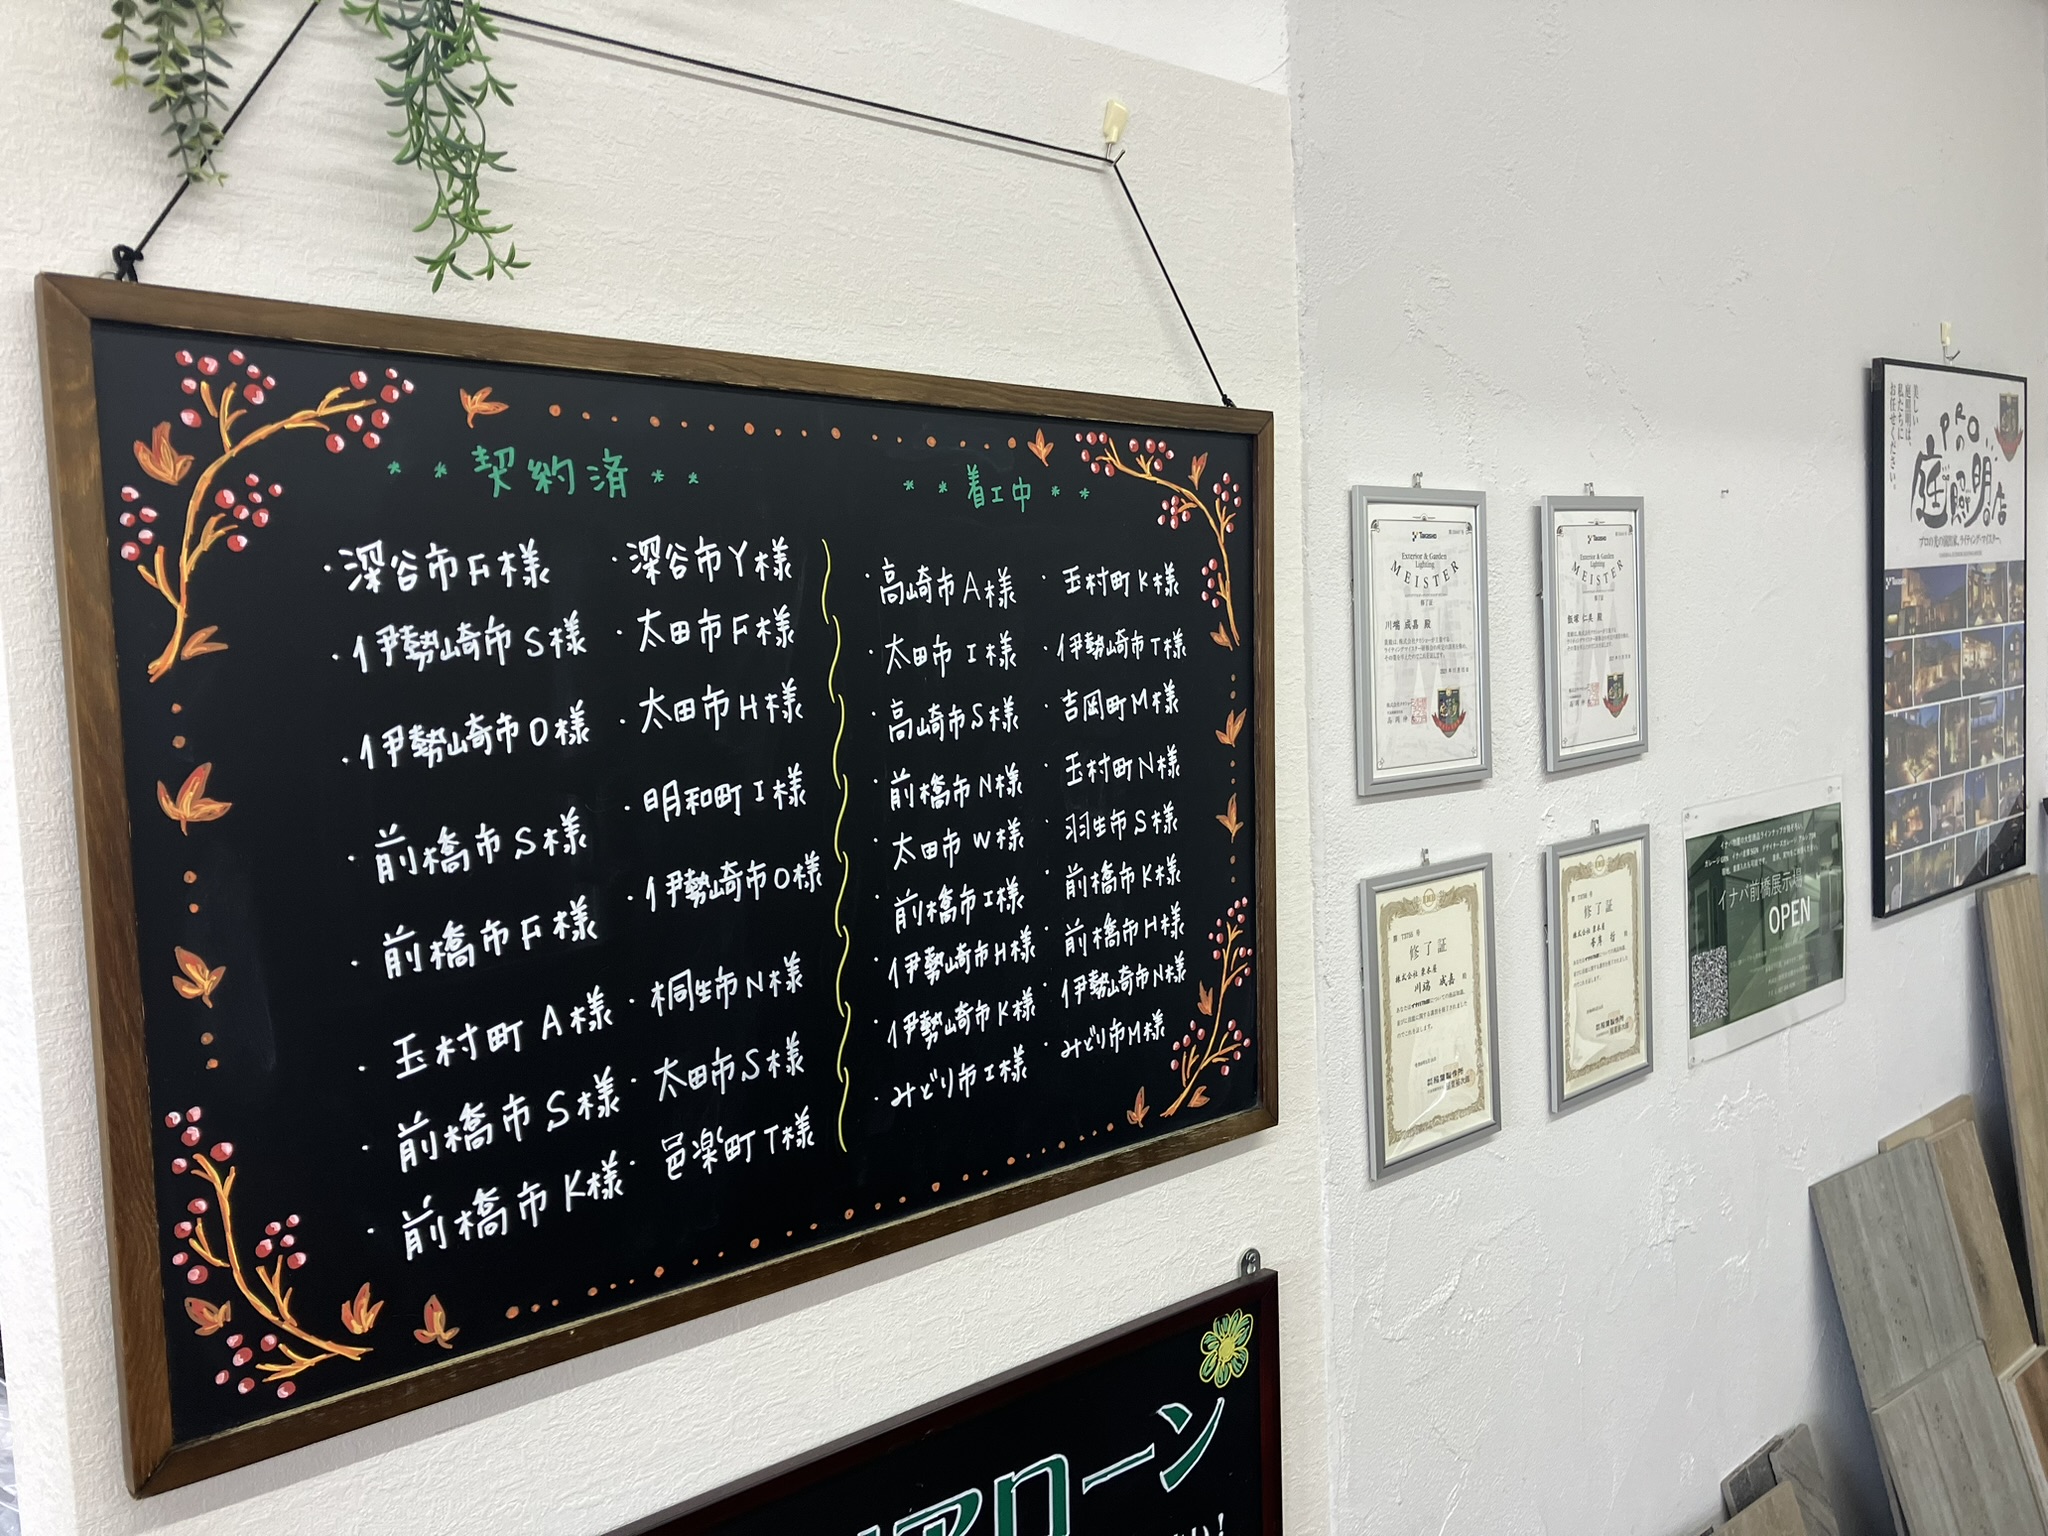 * * 契約済 * *
・深谷市F様
・伊勢崎市S様
・伊勢崎市O様
・前橋市S様
・前橋市F様
・玉村町A様
・前橋市S様
・前橋市K様
・深谷市Y様
・太田市F様
・太田市H様
・明和町I様
・伊勢崎市O様
・桐生市N様
・太田市S様
・邑楽町T様
* * 着工中 * *
・高崎市A様
・太田市I様
・高崎市S様
・前橋市N様
・太田市W様
・前橋市I様
・伊勢崎市H様
・伊勢崎市K様
・みどり市I様
・玉村町K様
・伊勢崎市T様
・吉岡町M様
・玉村町N様
・羽生市S様
・前橋市K様
・前橋市H様
・伊勢崎市N様
・みどり市M様
ローン
Exterior & Garden
Lighting
MEISTER
修了証
川端 成嘉 殿
Exterior & Garden
Lighting
MEISTER
修了証
飯塚 仁美 殿
修了証
川端 成嘉 殿
修了証
イナバ前橋展示場
OPEN
美しい
庭照明は、
私たちに
お任せください。
PROの
庭照明店
プロの光の演出家、ライティングマイスター。